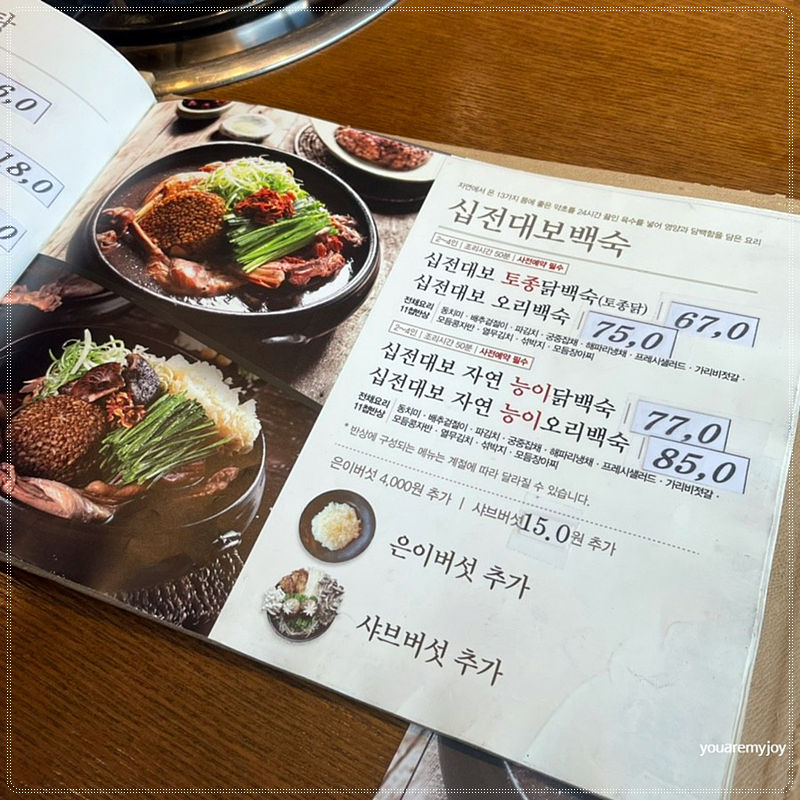 탕
6,0
18,0
0
자연에서 온 13가지 몸에 좋은 약초를 24시간 끓인 육수를 넣어 영양과 담백함을 담은 요리
십전대보백숙
2~4인 | 조리시간 50분 | 사전예약 필수
십전대보 토종닭백숙(토종닭) 67,0
십전대보 오리백숙 75,0
전채요리 동치미 · 배추겉절이 · 파김치 · 궁중잡채 · 해파리냉채 · 프레시샐러드 · 가리비젓갈 ·
11첩반상 모듬콩자반 · 열무김치 · 섞박지 · 모듬장아찌
2~4인 | 조리시간 50분 | 사전예약 필수
십전대보 자연 능이닭백숙 77,0
십전대보 자연 능이오리백숙 85,0
전채요리 동치미 · 배추겉절이 · 파김치 · 궁중잡채 · 해파리냉채 · 프레시샐러드 · 가리비젓갈 ·
11첩반상 모듬콩자반 · 열무김치 · 섞박지 · 모듬장아찌
* 반상에 구성되는 메뉴는 계절에 따라 달라질 수 있습니다.
은이버섯 4,000원 추가 | 샤브버섯 15.0원 추가
은이버섯 추가
샤브버섯 추가
youaremyjoy